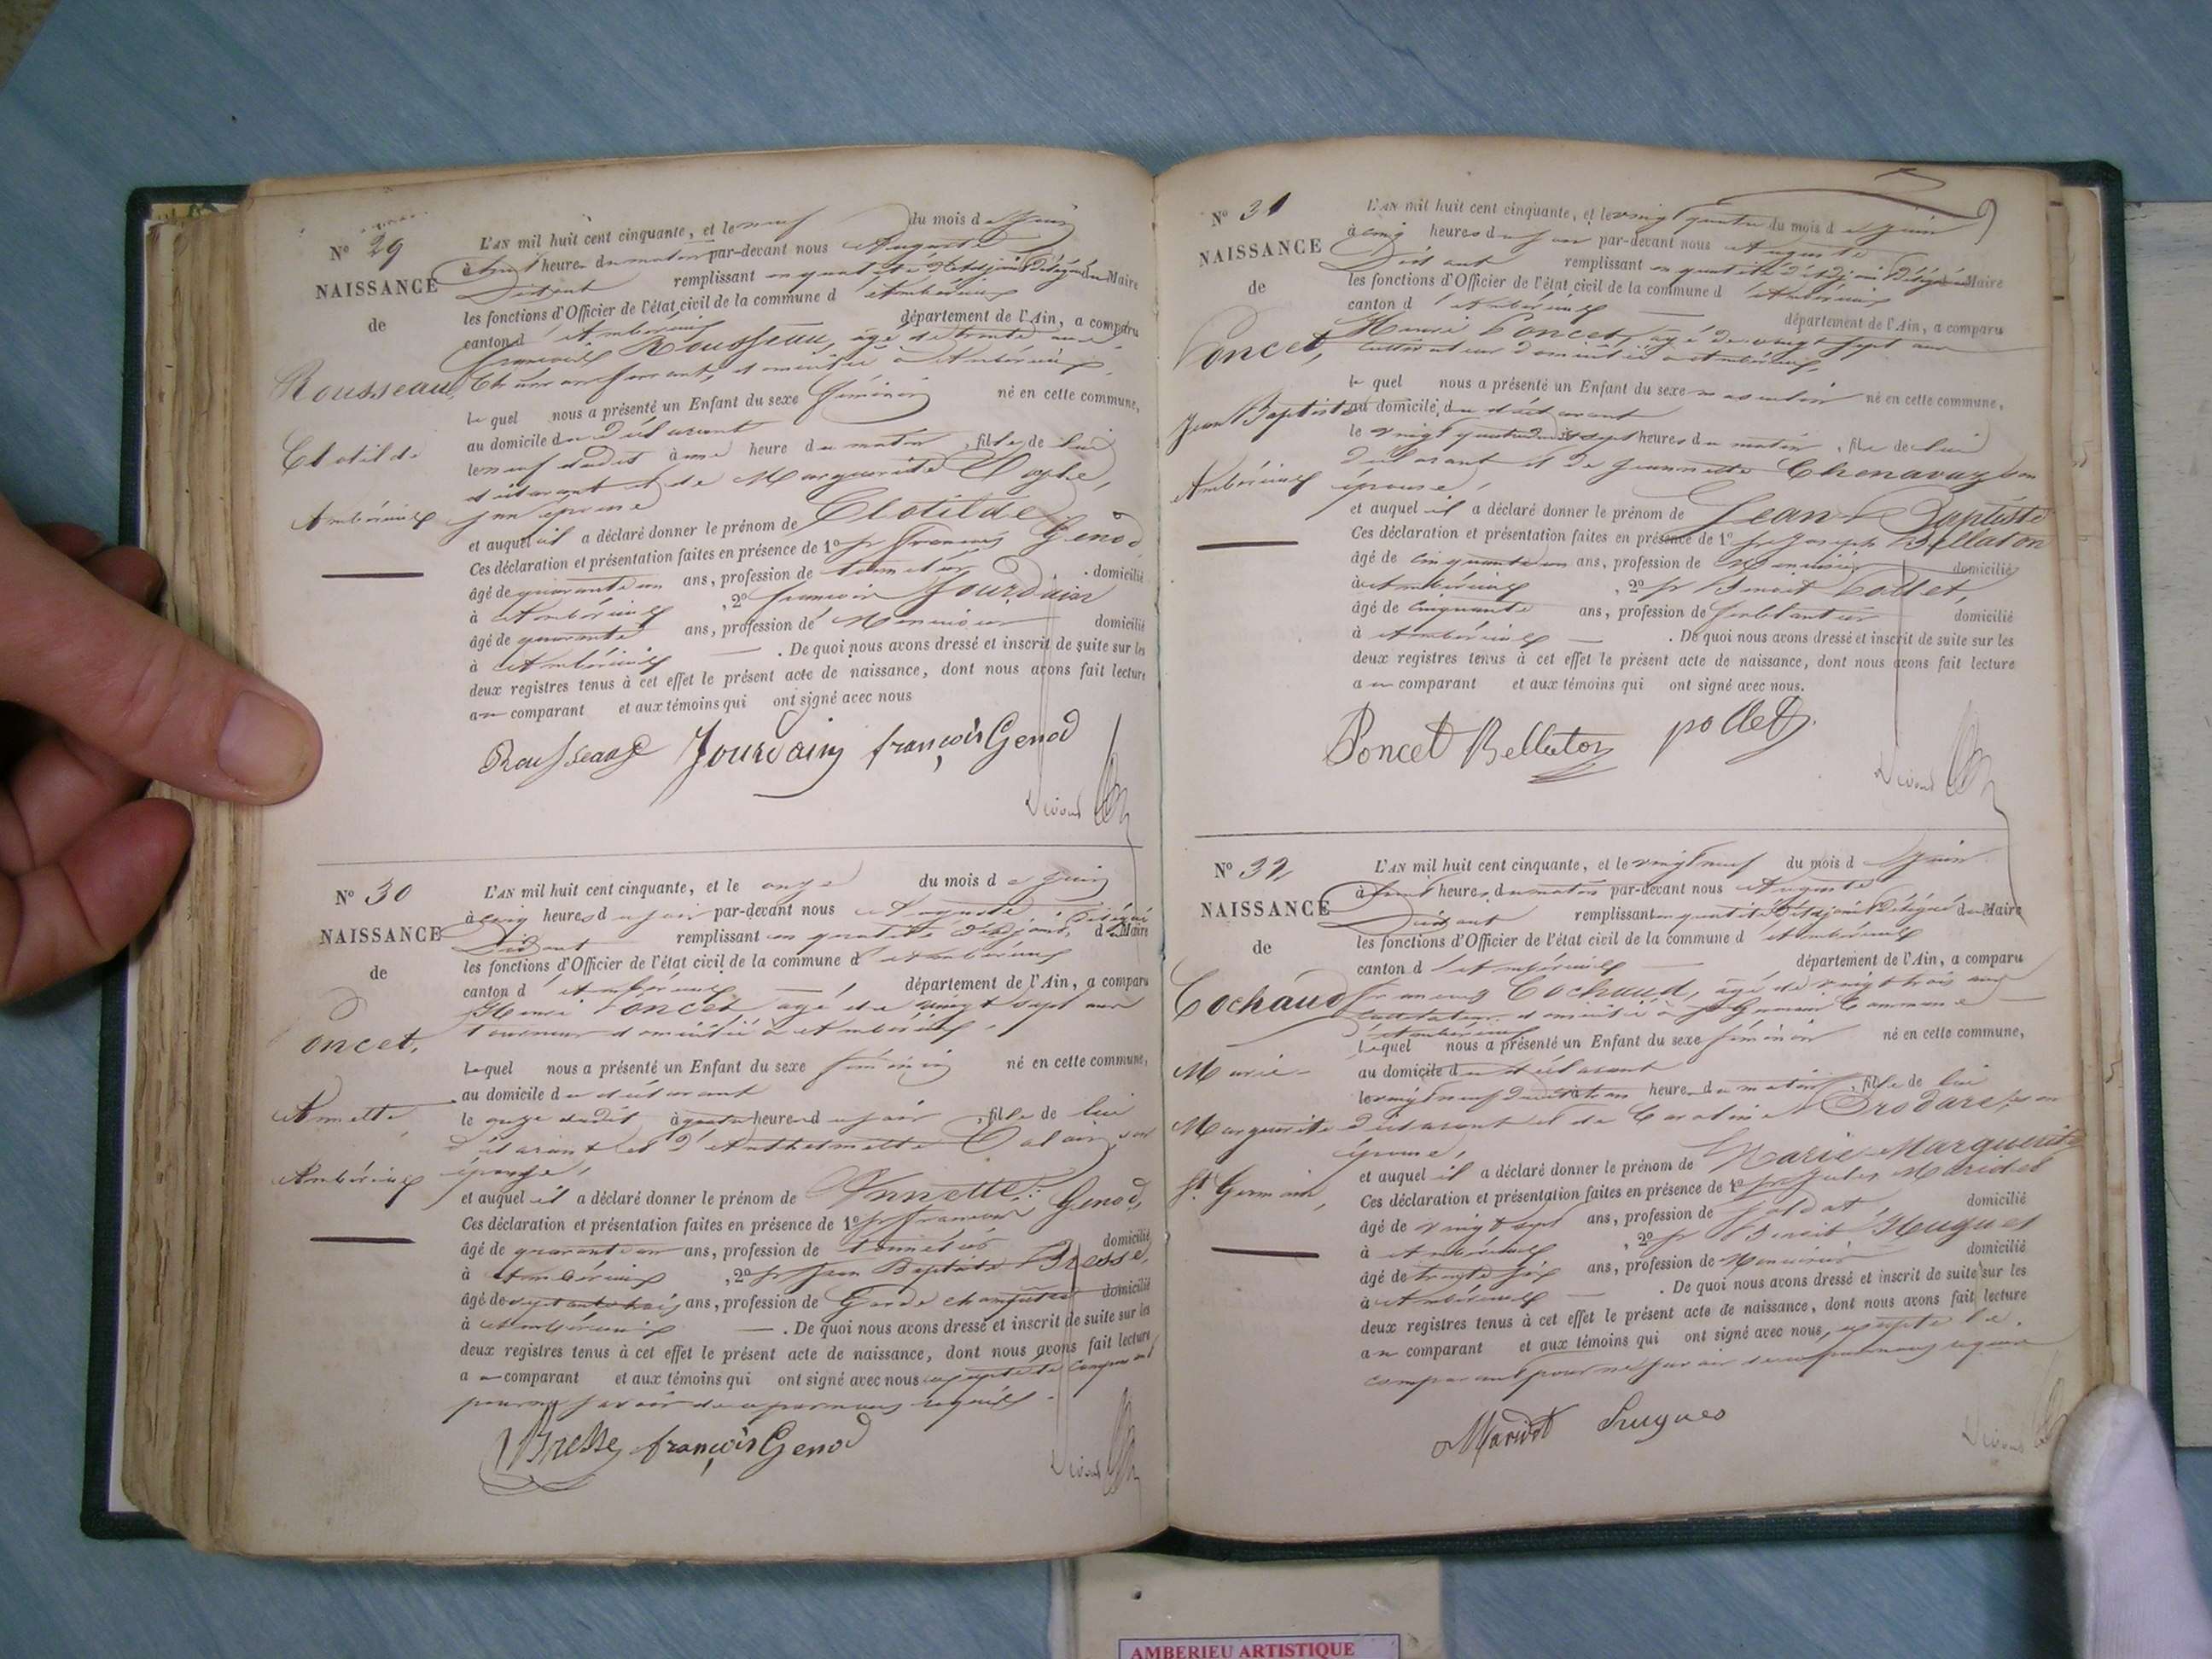 N° 29
NAISSANCE
de
Rousseau
Clotilde
Ambérieux
L'AN mil huit cent cinquante, et le neuf du mois de Juin
à huit heures du matin par-devant nous Auguste
remplissant en qualité d'adjoint Délégué du Maire
les fonctions d'Officier de l'état civil de la commune d'Ambérieux
canton d'Ambérieux département de l'Ain, a comparu
François Rousseau, âgé de trente ans
domicilié à Ambérieux,
lequel nous a présenté un Enfant du sexe féminin né en cette commune,
au domicile du déclarant
le neuf dudit à une heure du matin, fille de lui
déclarant et de Marguerite
son épouse
et auquel il a déclaré donner le prénom de Clotilde
Ces déclaration et présentation faites en présence de 1° sr François Genod
âgé de quarante un ans, profession de tonnelier domicilié
à Ambérieux, 2° François Jourdain
âgé de quarante ans, profession de Menuisier domicilié
à Ambérieux — . De quoi nous avons dressé et inscrit de suite sur les
deux registres tenus à cet effet le présent acte de naissance, dont nous avons fait lecture
au comparant et aux témoins qui ont signé avec nous
Rousseau Jourdain françois Genod
N° 30
NAISSANCE
de
Poncet,
Annette
Ambérieux
L'AN mil huit cent cinquante, et le onze du mois de Juin
à cinq heures du soir par-devant nous Auguste
remplissant en qualité d'adjoint Délégué du Maire
les fonctions d'Officier de l'état civil de la commune d'Ambérieux
canton d'Ambérieux — département de l'Ain, a comparu
Henri Poncet âgé de vingt sept ans
tourneur domicilié à Ambérieux,
lequel nous a présenté un Enfant du sexe féminin né en cette commune,
au domicile du déclarant
le onze dudit à quatre heures du soir, fille de lui
déclarant et d'Anthelmette son
épouse,
et auquel il a déclaré donner le prénom de Annette
Ces déclaration et présentation faites en présence de 1° sr François Genod,
âgé de quarante un ans, profession de tonnelier domicilié
à Ambérieux, 2° sr Jean Baptiste Bresse,
âgé de septante trois ans, profession de Garde champêtre domicilié
à Ambérieux — . De quoi nous avons dressé et inscrit de suite sur les
deux registres tenus à cet effet le présent acte de naissance, dont nous avons fait lecture
au comparant et aux témoins qui ont signé avec nous excepté le comparant
pour ne savoir de ce par nous requis.
Bresse françois Genod
N° 31
NAISSANCE
de
Poncet,
Jean Baptiste
Ambérieux
L'AN mil huit cent cinquante, et le vingt quatre du mois de Juin
à cinq heures du soir par-devant nous Auguste
remplissant en qualité d'adjoint Délégué du Maire
les fonctions d'Officier de l'état civil de la commune d'Ambérieux
canton d'Ambérieux — département de l'Ain, a comparu
Henri Poncet, âgé de vingt sept ans
cultivateur domicilié à Ambérieux,
lequel nous a présenté un Enfant du sexe masculin né en cette commune,
au domicile du déclarant
le vingt quatre dudit à sept heures du matin, fils de lui
déclarant et de Jeannette Chenavaz son
épouse,
et auquel il a déclaré donner le prénom de Jean Baptiste
Ces déclaration et présentation faites en présence de 1° sr Joseph Bellaton
âgé de cinquante un ans, profession de Menuisier domicilié
à Ambérieux, 2° sr Benoit Pollet,
âgé de cinquante ans, profession de ferblantier domicilié
à Ambérieux — . De quoi nous avons dressé et inscrit de suite sur les
deux registres tenus à cet effet le présent acte de naissance, dont nous avons fait lecture
au comparant et aux témoins qui ont signé avec nous.
Poncet Bellaton pollet
N° 32
NAISSANCE
de
Cochaud
Marie
Marguerite
St Germain,
L'AN mil huit cent cinquante, et le vingt neuf du mois de Juin
à huit heures du matin par-devant nous Auguste
remplissant en qualité d'adjoint Délégué du Maire
les fonctions d'Officier de l'état civil de la commune d'Ambérieux
canton d'Ambérieux — département de l'Ain, a comparu
François Cochaud, âgé de vingt trois ans
cultivateur domicilié à St Germain Commune
d'Ambérieux
lequel nous a présenté un Enfant du sexe féminin né en cette commune,
au domicile du déclarant
le vingt neuf dudit à heure du matin, fille de lui
déclarant et de Caroline Brodare, son
épouse,
et auquel il a déclaré donner le prénom de Marie Marguerite
Ces déclaration et présentation faites en présence de 1° sr Jules Maridet
âgé de vingt sept ans, profession de soldat domicilié
à Ambérieux, 2° sr Benoit Hugues
âgé de trente six ans, profession de Menuisier domicilié
à Ambérieux — . De quoi nous avons dressé et inscrit de suite sur les
deux registres tenus à cet effet le présent acte de naissance, dont nous avons fait lecture
au comparant et aux témoins qui ont signé avec nous, excepté le
comparant pour ne savoir de ce par nous requis
Maridet hugues
AMBERIEU ARTISTIQUE